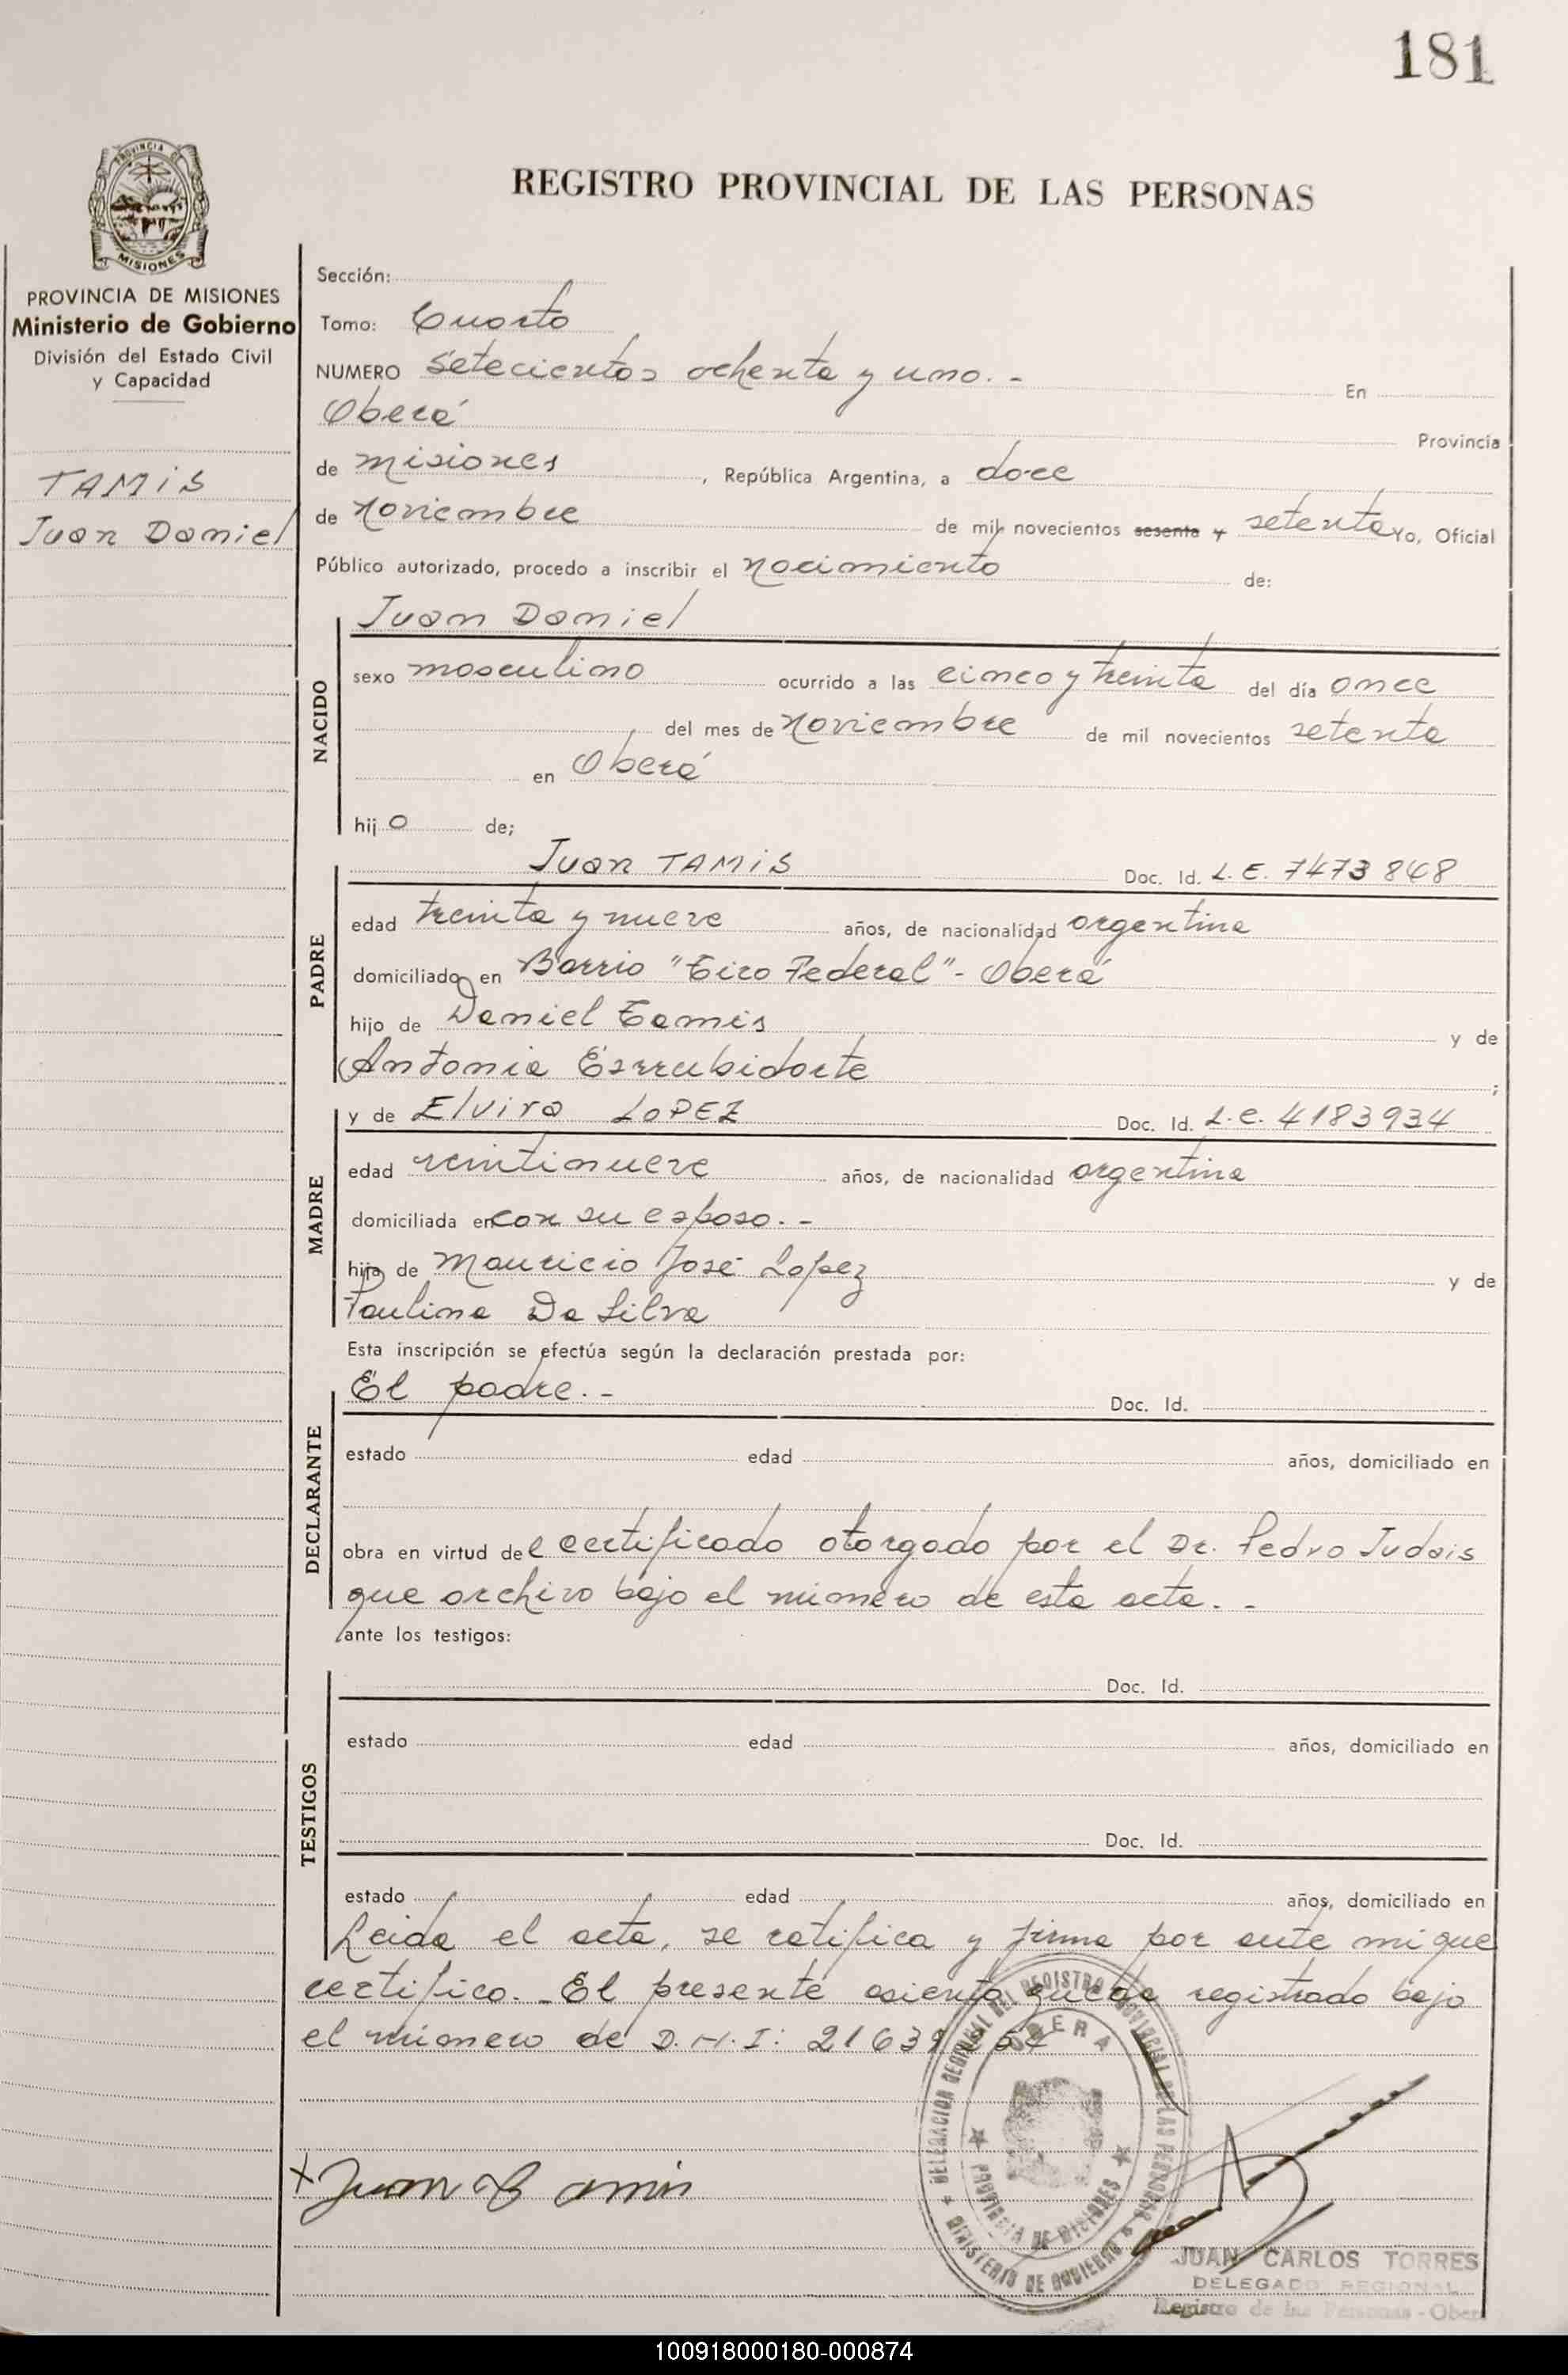 181
PROVINCIA DE
MISIONES
REGISTRO PROVINCIAL DE LAS PERSONAS
PROVINCIA DE MISIONES
Ministerio de Gobierno
División del Estado Civil
y Capacidad
TAMiS
Juan Daniel
Sección:
Tomo: Cuarto
NUMERO setecientos ochenta y uno. - En
Oberá Provincia
de misiones, República Argentina, a doce
de noviembre de mil novecientos sesenta y setenta Yo, Oficial
Público autorizado, procedo a inscribir el nacimiento de:
NACIDO
Juan Daniel
sexo masculino ocurrido a las cinco y treinta del día once
del mes de noviembre de mil novecientos setenta
en Oberá
hijo de;
PADRE
Juan TAMiS Doc. Id. L.E. 7473868
edad treinta y nueve años, de nacionalidad argentina
domiciliado en Barrio "Tiro Federal" - Oberá
hijo de Daniel Tamis y de
Antonia ;
MADRE
y de Elvira LOPEZ Doc. Id. L.C. 4183934
edad veintinueve años, de nacionalidad argentina
domiciliada en con su esposo. -
hija de Mauricio José Lopez y de
Paulina Da Silva
Esta inscripción se efectúa según la declaración prestada por:
DECLARANTE
El padre. - Doc. Id.
estado edad años, domiciliado en
obra en virtud del certificado otorgado por el Dr. Pedro Judais
que archivo bajo el número de esta acta. -
ante los testigos:
TESTIGOS
Doc. Id.
estado edad años, domiciliado en
Doc. Id.
estado edad años, domiciliado en
Leida el acta, se ratifica y firma por ante mi que
certifico. - El presente asiento queda registrado bajo
el número de D.N.I:
DELEGACION REGIONAL DEL REGISTRO PROVINCIAL DE LAS PERSONAS
OBERA
PROVINCIA DE MISIONES
MINISTERIO DE GOBIERNO
Juan Tamis
JUAN CARLOS TORRES
DELEGADO REGIONAL
Registro de las Personas - Oberá
100918000180-000874